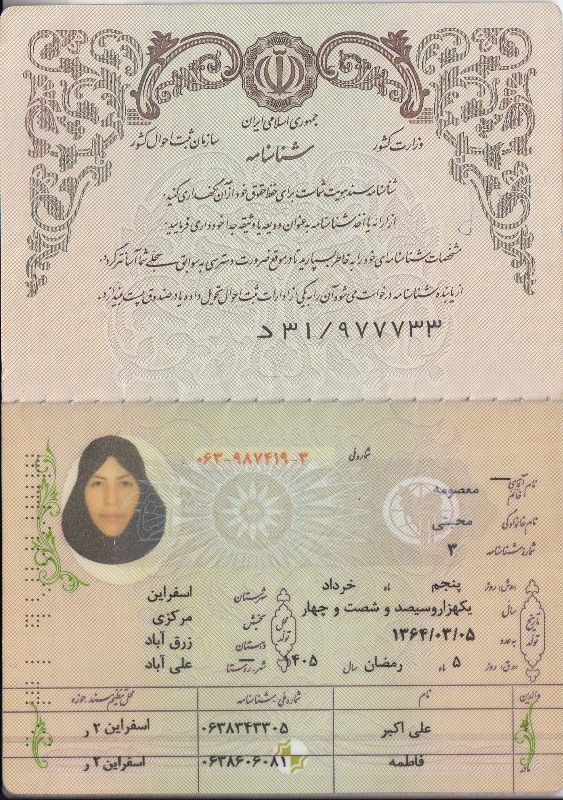 جمهوری اسلامی ایران
وزارت کشور
سازمان ثبت احوال کشور
شناسنامه
شناسنامه سند هویت شماست برای حفظ حقوق خود از آن نگهداری کنید.
از ارائه یا اخذ شناسنامه به عنوان ودیعه یا وثیقه جدا خودداری فرمایید.
مشخصات شناسنامه‌ای خود را به خاطر بسپارید تا در موقع ضرورت دسترسی به سوابق سجلی شما آسانتر گردد.
از یابنده شناسنامه درخواست می‌شود آن را به یکی از ادارات ثبت احوال تحویل داده یا در صندوق پست بیندازد.
د ۳۱/۹۷۷۷۳۳
شماره ملی ۰۶۳-۹۸۷۴۱۹-۳
نام آقای خانم معصومه
نام خانوادگی محبتی
شماره شناسنامه ۳
تاریخ تولد
روز پنجم ماه خرداد
سال یکهزاروسیصد و شصت و چهار
به عدد ۱۳۶۴/۰۳/۰۵
روز ۵ ماه رمضان سال ۱۴۰۵
محل تولد
شهرستان اسفراین
بخش مرکزی
دهستان زرق آباد
شهر-روستا علی آباد
والدین نام شماره ملی-شناسنامه محل تنظیم سند-حوزه
پدر علی اکبر ۰۶۳۸۳۴۳۳۰۵ اسفراین ۲ ر
مادر فاطمه ۰۶۳۸۶۰۶۰۸۱ اسفراین ۲ ر